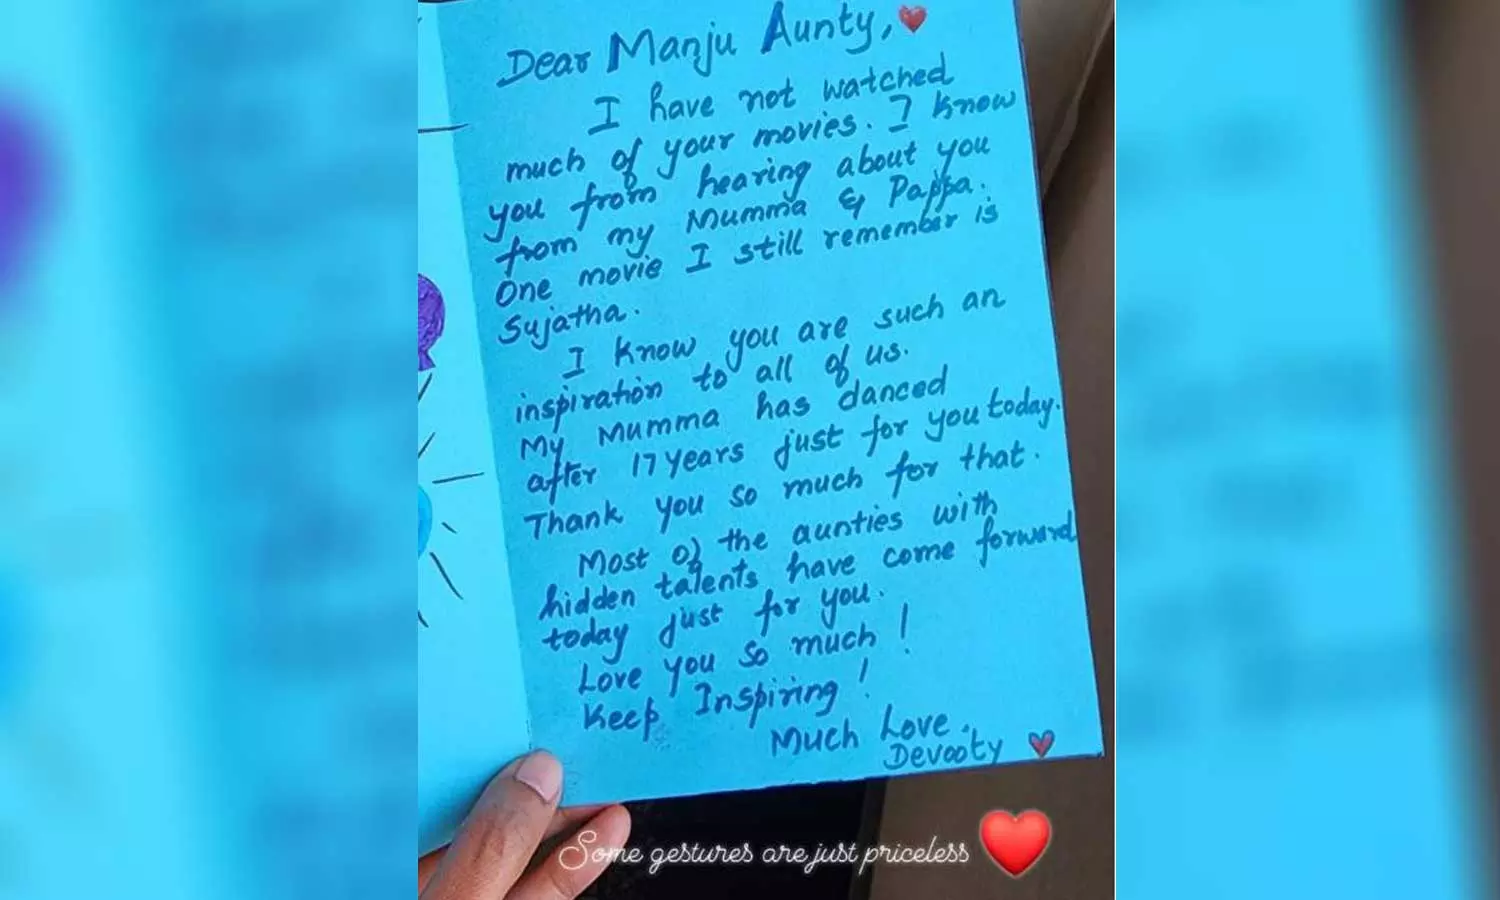 Dear Manju Aunty,
I have not watched
much of your movies. I know
you from hearing about you
from my Mumma & Pappa.
One movie I still remember is
Sujatha.
I know you are such an
inspiration to all of us.
My Mumma has danced
after 17 years just for you today.
Thank you so much for that.
Most of the aunties with
hidden talents have come forward
today just for you.
Love you so much!
Keep Inspiring!
Much Love,
Devooty
Some gestures are just priceless